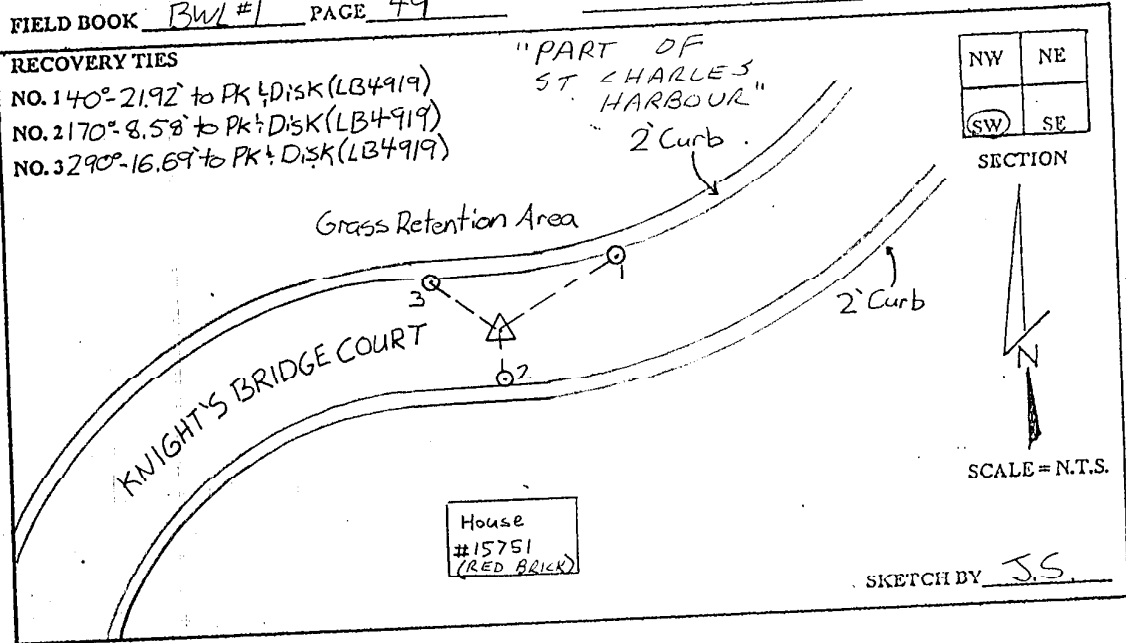 FIELD BOOK BWL #1 PAGE 49
RECOVERY TIES
NO. 1 40°-21.92' to PK & Disk (LB4919)
NO. 2 170°-8.58' to PK & Disk (LB4919)
NO. 3 290°-16.69' to PK & Disk (LB4919)
"PART OF
ST CHARLES
HARBOUR"
2' Curb
NW NE
SW SE
SECTION
Grass Retention Area
1
3
2
2' Curb
KNIGHT'S BRIDGE COURT
N
SCALE = N.T.S.
House
#15751
(RED BRICK)
SKETCH BY J.S.